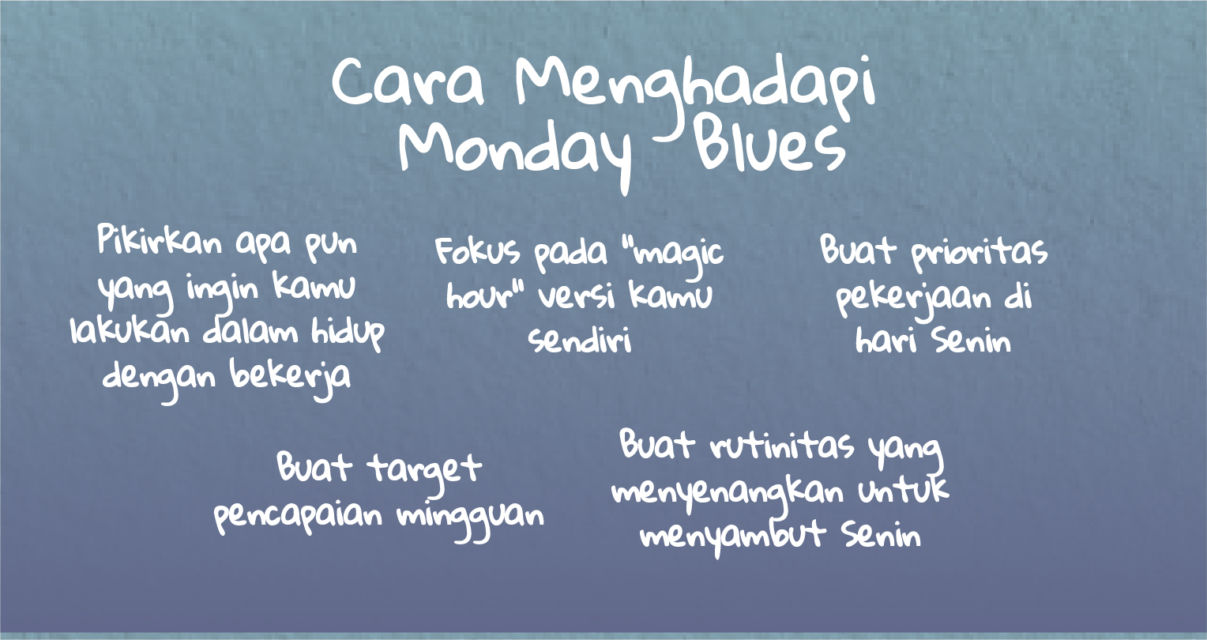 Cara Menghadapi
Monday Blues
Pikirkan apa pun
yang ingin kamu
lakukan dalam hidup
dengan bekerja
Fokus pada "magic
hour" versi kamu
sendiri
Buat prioritas
pekerjaan di
hari Senin
Buat target
pencapaian mingguan
Buat rutinitas yang
menyenangkan untuk
menyambut Senin